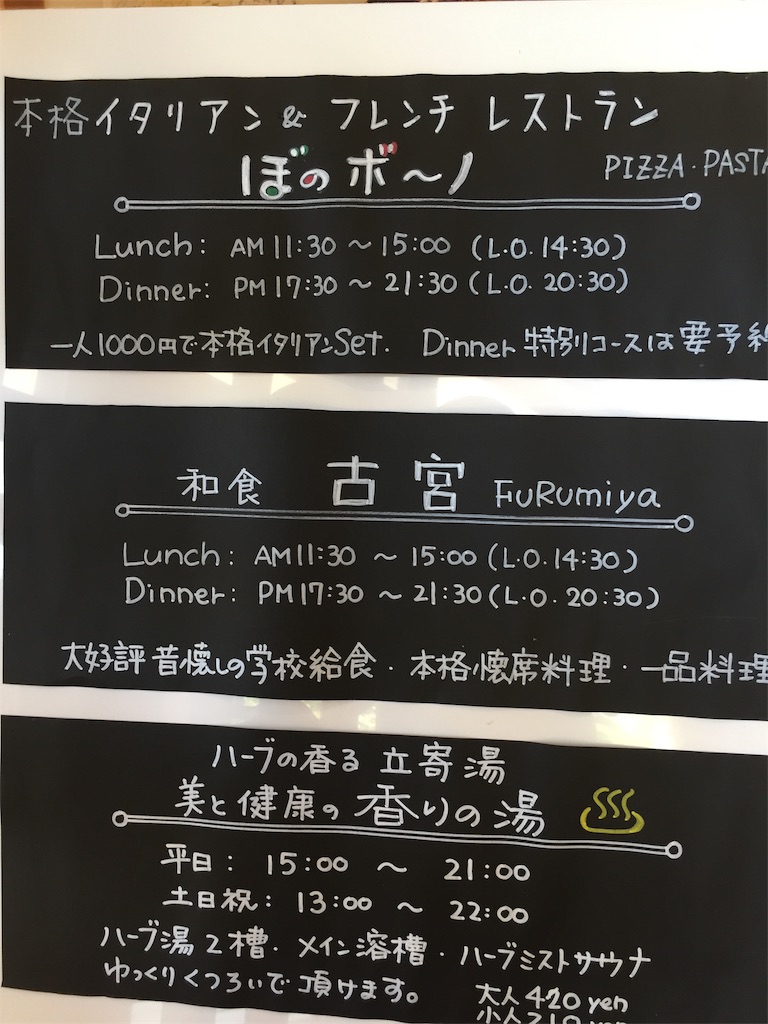 本格イタリアン & フレンチ レストラン
ぼのボ～ノ PIZZA・PASTA
Lunch: AM 11:30 ～ 15:00 (L.O. 14:30)
Dinner: PM 17:30 ～ 21:30 (L.O. 20:30)
一人1000円で本格イタリアンSet. Dinner 特別コースは要予約
和食 古宮 FuRumiya
Lunch: AM11:30 ～ 15:00 (L.O.14:30)
Dinner: PM 17:30 ～ 21:30 (L.O. 20:30)
大好評 昔懐しの学校給食・本格懐席料理・一品料理
ハーブの香る 立寄湯
美と健康の香りの湯
平日: 15:00 ～ 21:00
土日祝: 13:00 ～ 22:00
ハーブ湯 2槽・メイン溶槽・ハーブミストサウナ
ゆっくりくつろいで頂けます。
大人 420 yen
小人 210 yen